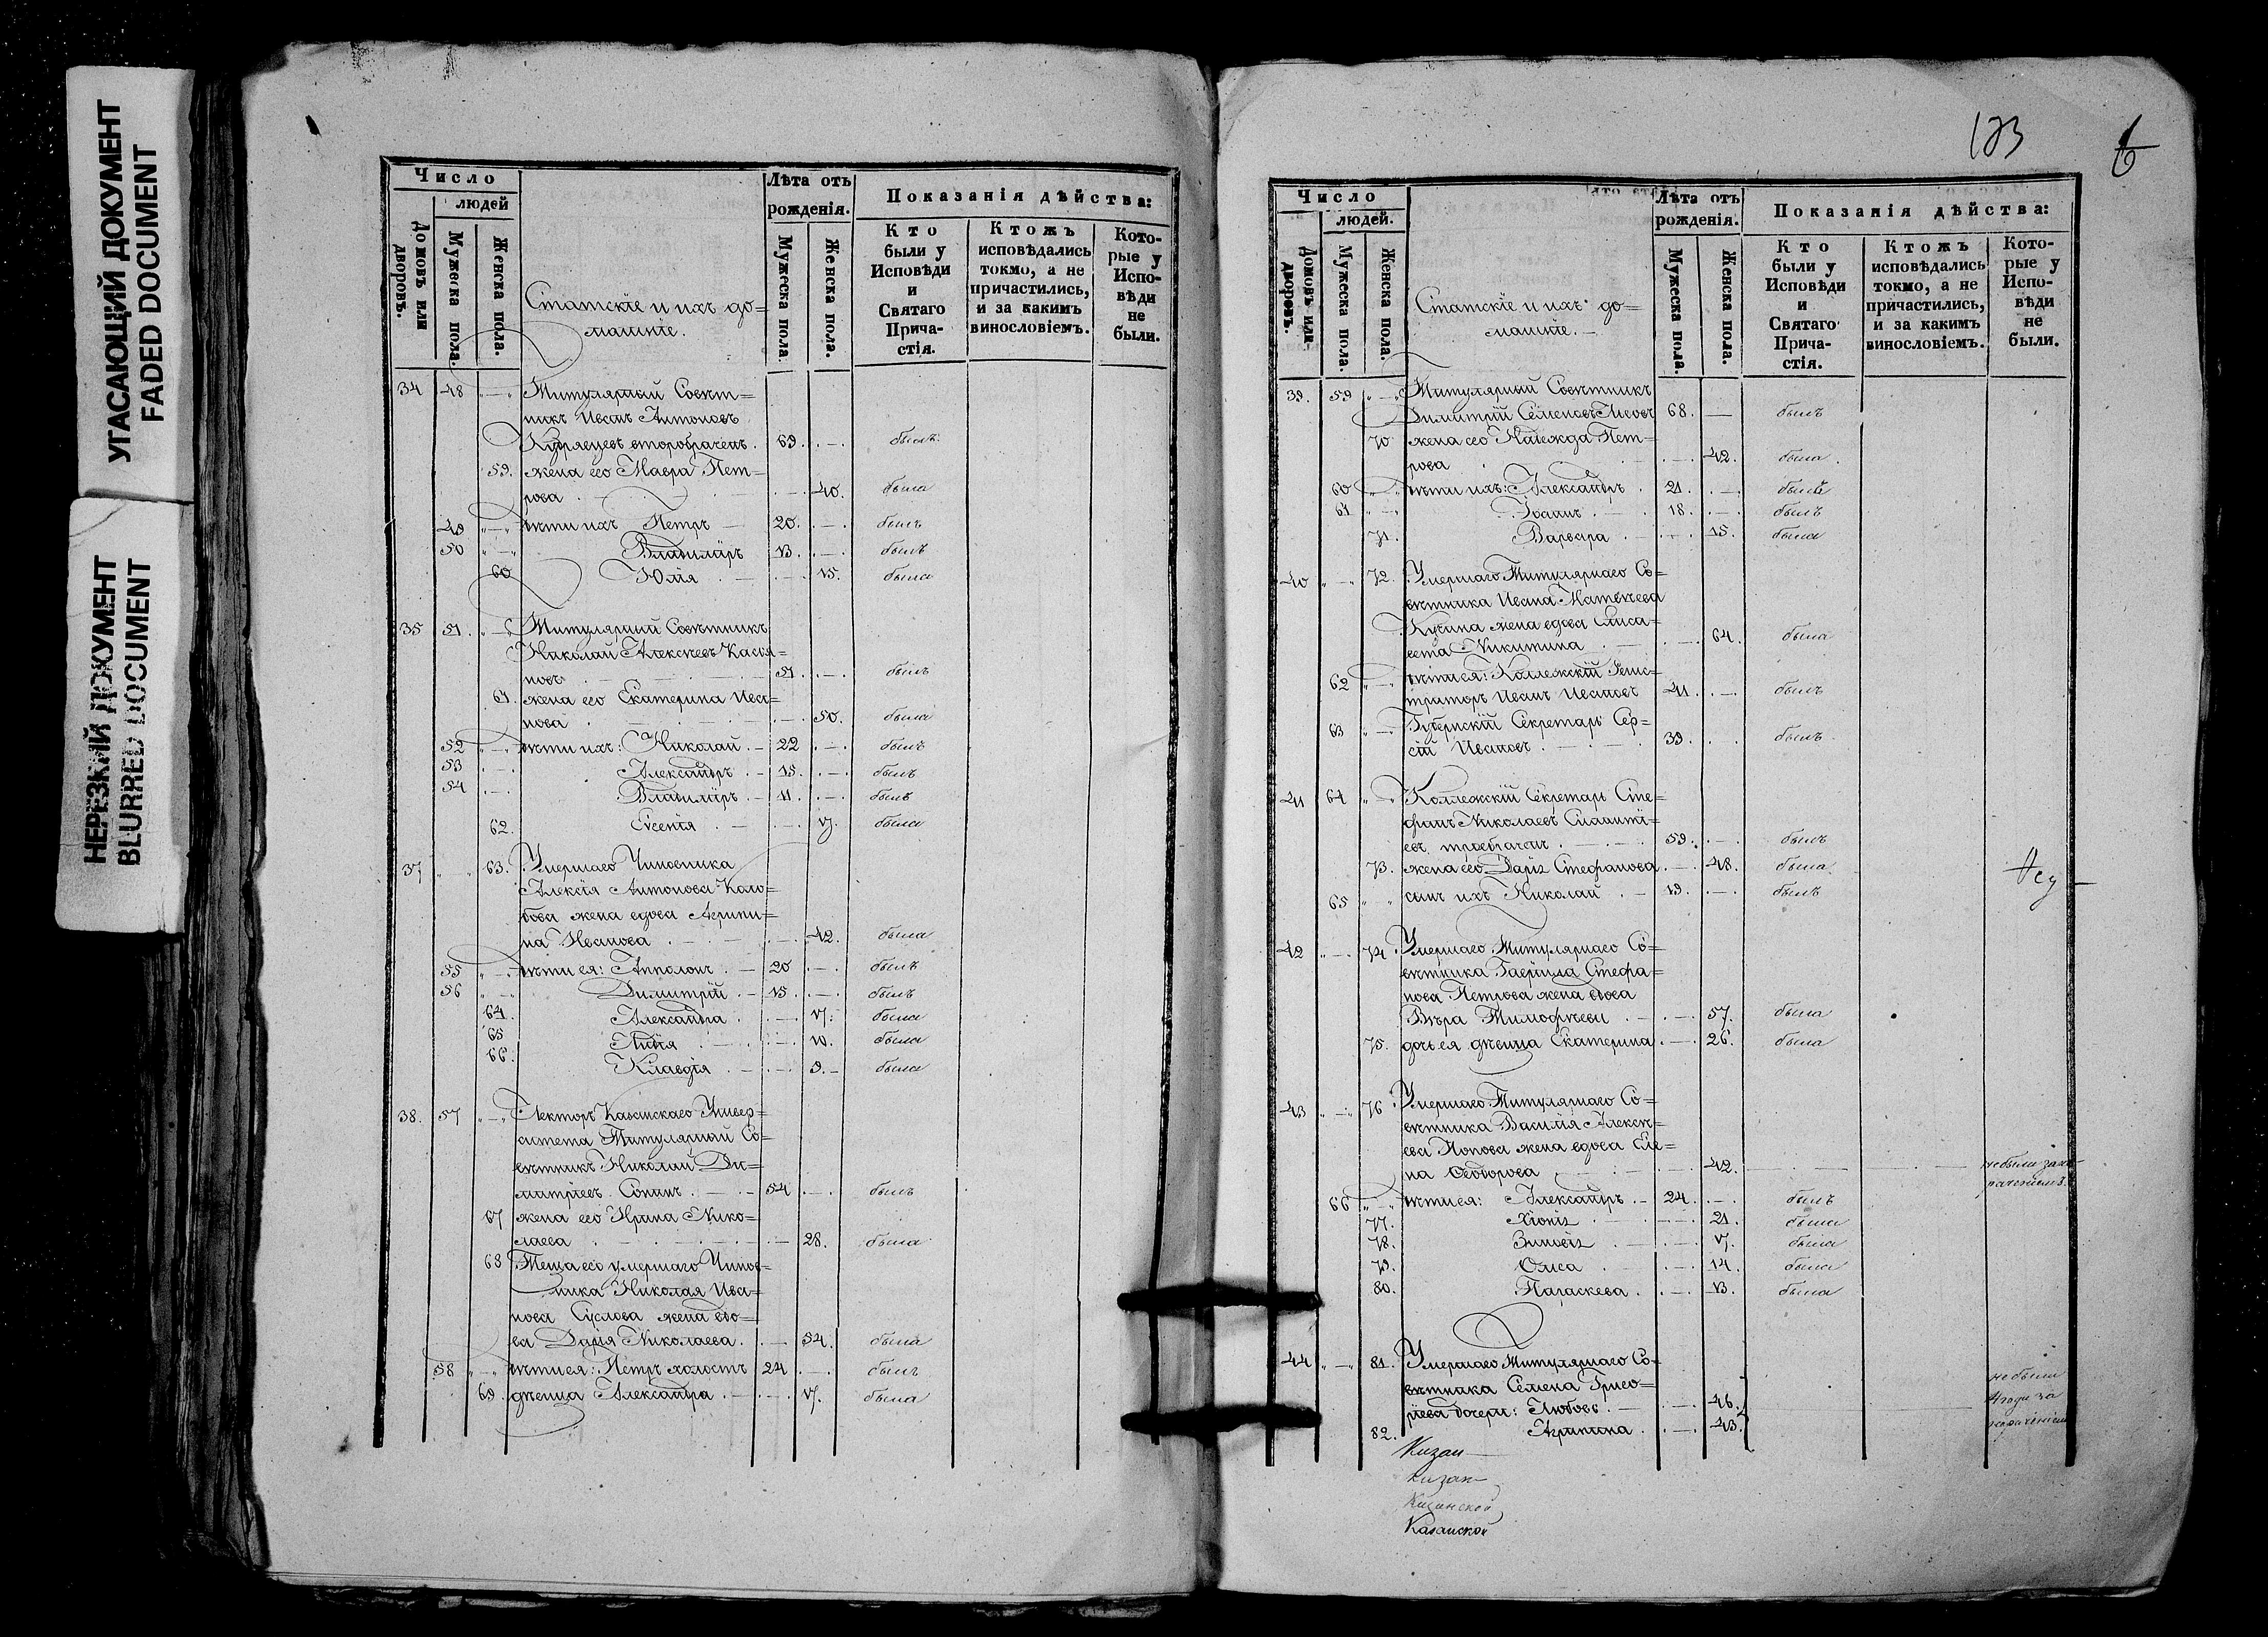 УГАСАЮЩИЙ ДОКУМЕНТ
FADED DOCUMENT
НЕРЕЗКИЙ ДОКУМЕНТ
BLURRED DOCUMENT
Число
людей
Домовъ или дворовъ.
Мужеска пола.
Женска пола.
Статскіе и ихъ до=
машніе.
Лѣта отъ
рожденія.
Мужеска пола.
Женска пола.
Показанія дѣйства:
Кто
были у
Исповѣди
и
Святаго
Прича-
стія.
Ктожъ
исповѣдались
токмо, а не
причастились,
и за какимъ
винословіемъ.
Кото-
рые у
Испо-
вѣди
не
были.
34 48 Титулярный Совѣт=
никъ Иванъ Антоновъ
Кудрявцевъ второбраченъ. 69. былъ
59. жена его Мавра Пет=
рова 40. была
49 дѣти ихъ Петръ 20. былъ
50 Владиміръ 13. былъ
60 Юлія 15. была
35 51. Титулярный Совѣтникъ
Николай Алексѣевъ Касья=
новъ 51. былъ
61. жена его Екатерина Ива=
нова 50. была
52 дѣти ихъ: Николай 22 былъ
53 Александръ 15. былъ
54 Владиміръ 11. былъ
62. Евгенія 17. была
37 63. Умершаго Чиновника
Алексія Антонова
жена вдова Агрипи=
на Иванова 42. была
55 дѣти ея: Апполонъ 20 былъ
56 Димитрій 15. былъ
64. Александра 17. была
65 Лидія 10. была
66. Клавдія 9. была
38. 57 Лекторъ Казанскаго Универ=
ситета Титулярный Со=
вѣтникъ Николай Ди=
митріевъ Сонинъ 54 былъ
67 жена его Ирина Нико=
лаева 28. была
68 Теща его умершаго Чинов=
ника Николая Ива=
нова Суслова жена вдо=
ва Дарія Николаева. 54. была
58 дѣти ея: Петръ холостъ 24 былъ
69. дѣвица Александра 17. была
173
6
Число
людей.
Домовъ или дворовъ.
Мужеска пола.
Женска пола.
Статскіе и ихъ до=
машніе.
Лѣта отъ
рожденія.
Мужеска пола.
Женска пола.
Показанія дѣйства:
Кто
были у
Исповѣди
и
Святаго
Прича-
стія.
Ктожъ
исповѣдались
токмо, а не
причастились,
и за какимъ
винословіемъ.
Кото-
рые у
Испо-
вѣди
не
были.
39. 59 Титулярный Совѣтникъ
Димитрій Семеновъ 68. былъ
70 жена его Надежда Пет=
рова 42. была
60 дѣти ихъ: Александръ 21. былъ
61 Іоаннъ 18. былъ
71. Варвара 15. была
40 72. Умершаго Титулярнаго Со=
вѣтника Ивана Матвѣева
жена вдова Елиса=
вета Никитина 64. была
62 дѣти ея: Коллежскій Регис=
траторъ Иванъ Ивановъ 41. былъ
63 Губернскій Секретарь Сер=
гій Ивановъ 39. былъ
41 64 Коллежскій Секретарь Сте=
фанъ Николаевъ
троебраченъ 59. былъ
73. жена его Дарія Стефанова 48. была
65 сынъ ихъ Николай 19. былъ
42 74. Умершаго Титулярнаго Со=
вѣтника Гавріила Стефа=
нова Петрова жена вдова
Вѣра Тимофѣева 57. была
75. дочь ея дѣвица Екатерина 26. была
43 76. Умершаго Титулярнаго Со=
вѣтника Василія Алексѣ=
ева Попова жена вдова Еле=
на Ѳеодорова 42. не были за
66 дѣти ея: Александръ 24. былъ
77. Хіонія 21. была
78. Зиновія 17. была
79. Олга 14. была
80. Параскева 13. была
44 81. Умершаго Титулярнаго Со=
вѣтника Семена Григо=
рьева дочери: Любовь 46. не были
82. Агрипина 43.
Казан
Казан
Казанской
Казанской